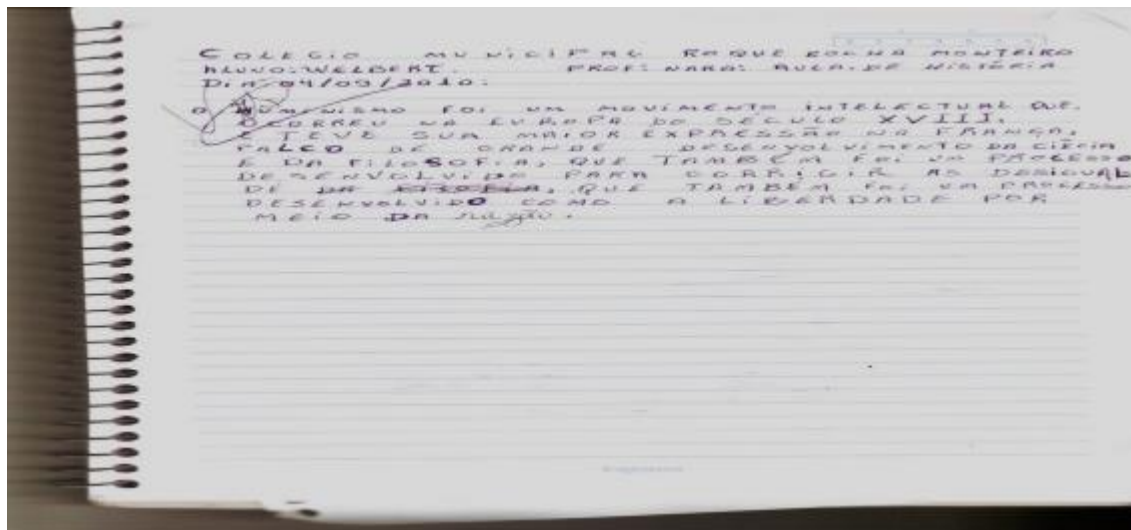 COLEGIO MUNICIPAL ROQUE ROCHA MONTEIRO
ALUNO: WELBERT. PROF: NARA: AULA. DE HISTÓRIA
DIA 04/09/2010:
O HUMANISMO FOI UM MOVIMENTO INTELECTUAL QUE.
OCORREU NA EUROPA DO SÉCULO XVIII.
E TEVE SUA MAIOR EXPRESSÃO NA FRANÇA,
PALCO DE GRANDE DESENVOLVIMENTO DA CIÊCIA
E DA FILOSOFIA, QUE TAMBÉM FOI UM PROCESSO
DESENVOLVIDO PARA CORRIGIR AS DESIGUAL
DE DA, QUE TAMBÉM FOI UM PROCESSO
DESENVOLVIDO COMO A LIBERDADE POR
MEIO DA razão.